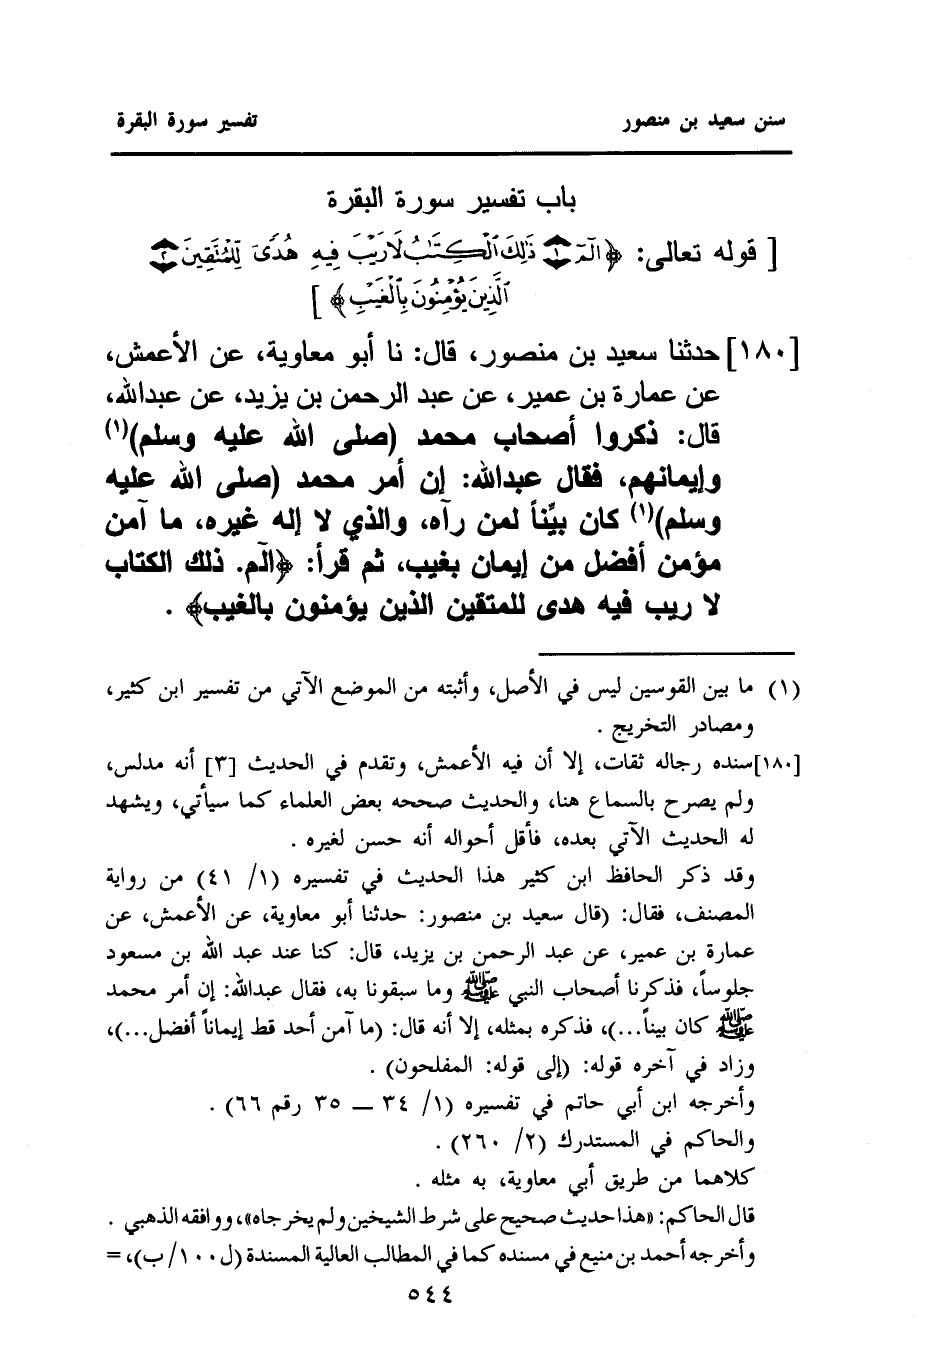 سنن سعيد بن منصور تفسير سورة البقرة
باب تفسير سورة البقرة
[ قوله تعالى: ﴿الٓمٓ ١ ذَٰلِكَ ٱلْكِتَٰبُ لَا رَيْبَ فِيهِ هُدًى لِّلْمُتَّقِينَ ٢
ٱلَّذِينَ يُؤْمِنُونَ بِٱلْغَيْبِ﴾ ]
[١٨٠] حدثنا سعيد بن منصور، قال: نا أبو معاوية، عن الأعمش،
عن عمارة بن عمير، عن عبد الرحمن بن يزيد، عن عبدالله،
قال: ذكروا أصحاب محمد (صلى الله عليه وسلم)(١)
وإيمانهم، فقال عبدالله: إن أمر محمد (صلى الله عليه
وسلم)(١) كان بيِّناً لمن رآه، والذي لا إله غيره، ما آمن
مؤمن أفضل من إيمان بغيب، ثم قرأ: ﴿الٓم. ذلك الكتاب
لا ريب فيه هدى للمتقين الذين يؤمنون بالغيب﴾ .
(١) ما بين القوسين ليس في الأصل، وأثبته من الموضع الآتي من تفسير ابن كثير،
ومصادر التخريج .
[١٨٠] سنده رجاله ثقات، إلا أن فيه الأعمش، وتقدم في الحديث [٣] أنه مدلس،
ولم يصرح بالسماع هنا، والحديث صححه بعض العلماء كما سيأتي، ويشهد
له الحديث الآتي بعده، فأقل أحواله أنه حسن لغيره .
وقد ذكر الحافظ ابن كثير هذا الحديث في تفسيره (١/ ٤١) من رواية
المصنف، فقال: (قال سعيد بن منصور: حدثنا أبو معاوية، عن الأعمش، عن
عمارة بن عمير، عن عبد الرحمن بن يزيد، قال: كنا عند عبد الله بن مسعود
جلوساً، فذكرنا أصحاب النبي ﷺ وما سبقونا به، فقال عبدالله: إن أمر محمد
ﷺ كان بيناً...)، فذكره بمثله، إلا أنه قال: (ما آمن أحد قط إيماناً أفضل...)،
وزاد في آخره قوله: (إلى قوله: المفلحون) .
وأخرجه ابن أبي حاتم في تفسيره (١/ ٣٤ — ٣٥ رقم ٦٦) .
والحاكم في المستدرك (٢/ ٢٦٠) .
كلاهما من طريق أبي معاوية، به مثله .
قال الحاكم: «هذا حديث صحيح على شرط الشيخين ولم يخرجاه»، ووافقه الذهبي .
وأخرجه أحمد بن منيع في مسنده كما في المطالب العالية المسندة (ل١٠٠/ب)، =
٥٤٤